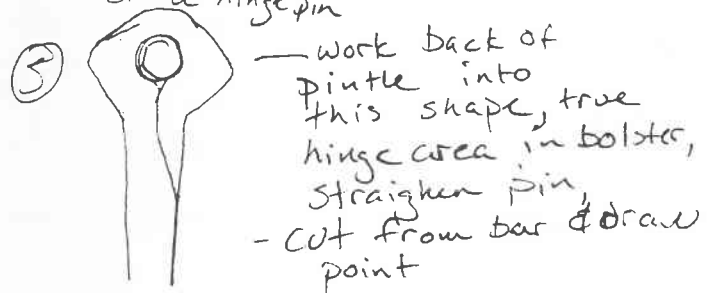 a hinge pin
5
— work back of
pintle into
this shape, true
hinge area in bolster,
straighen pin,
- cut from bar & draw
point